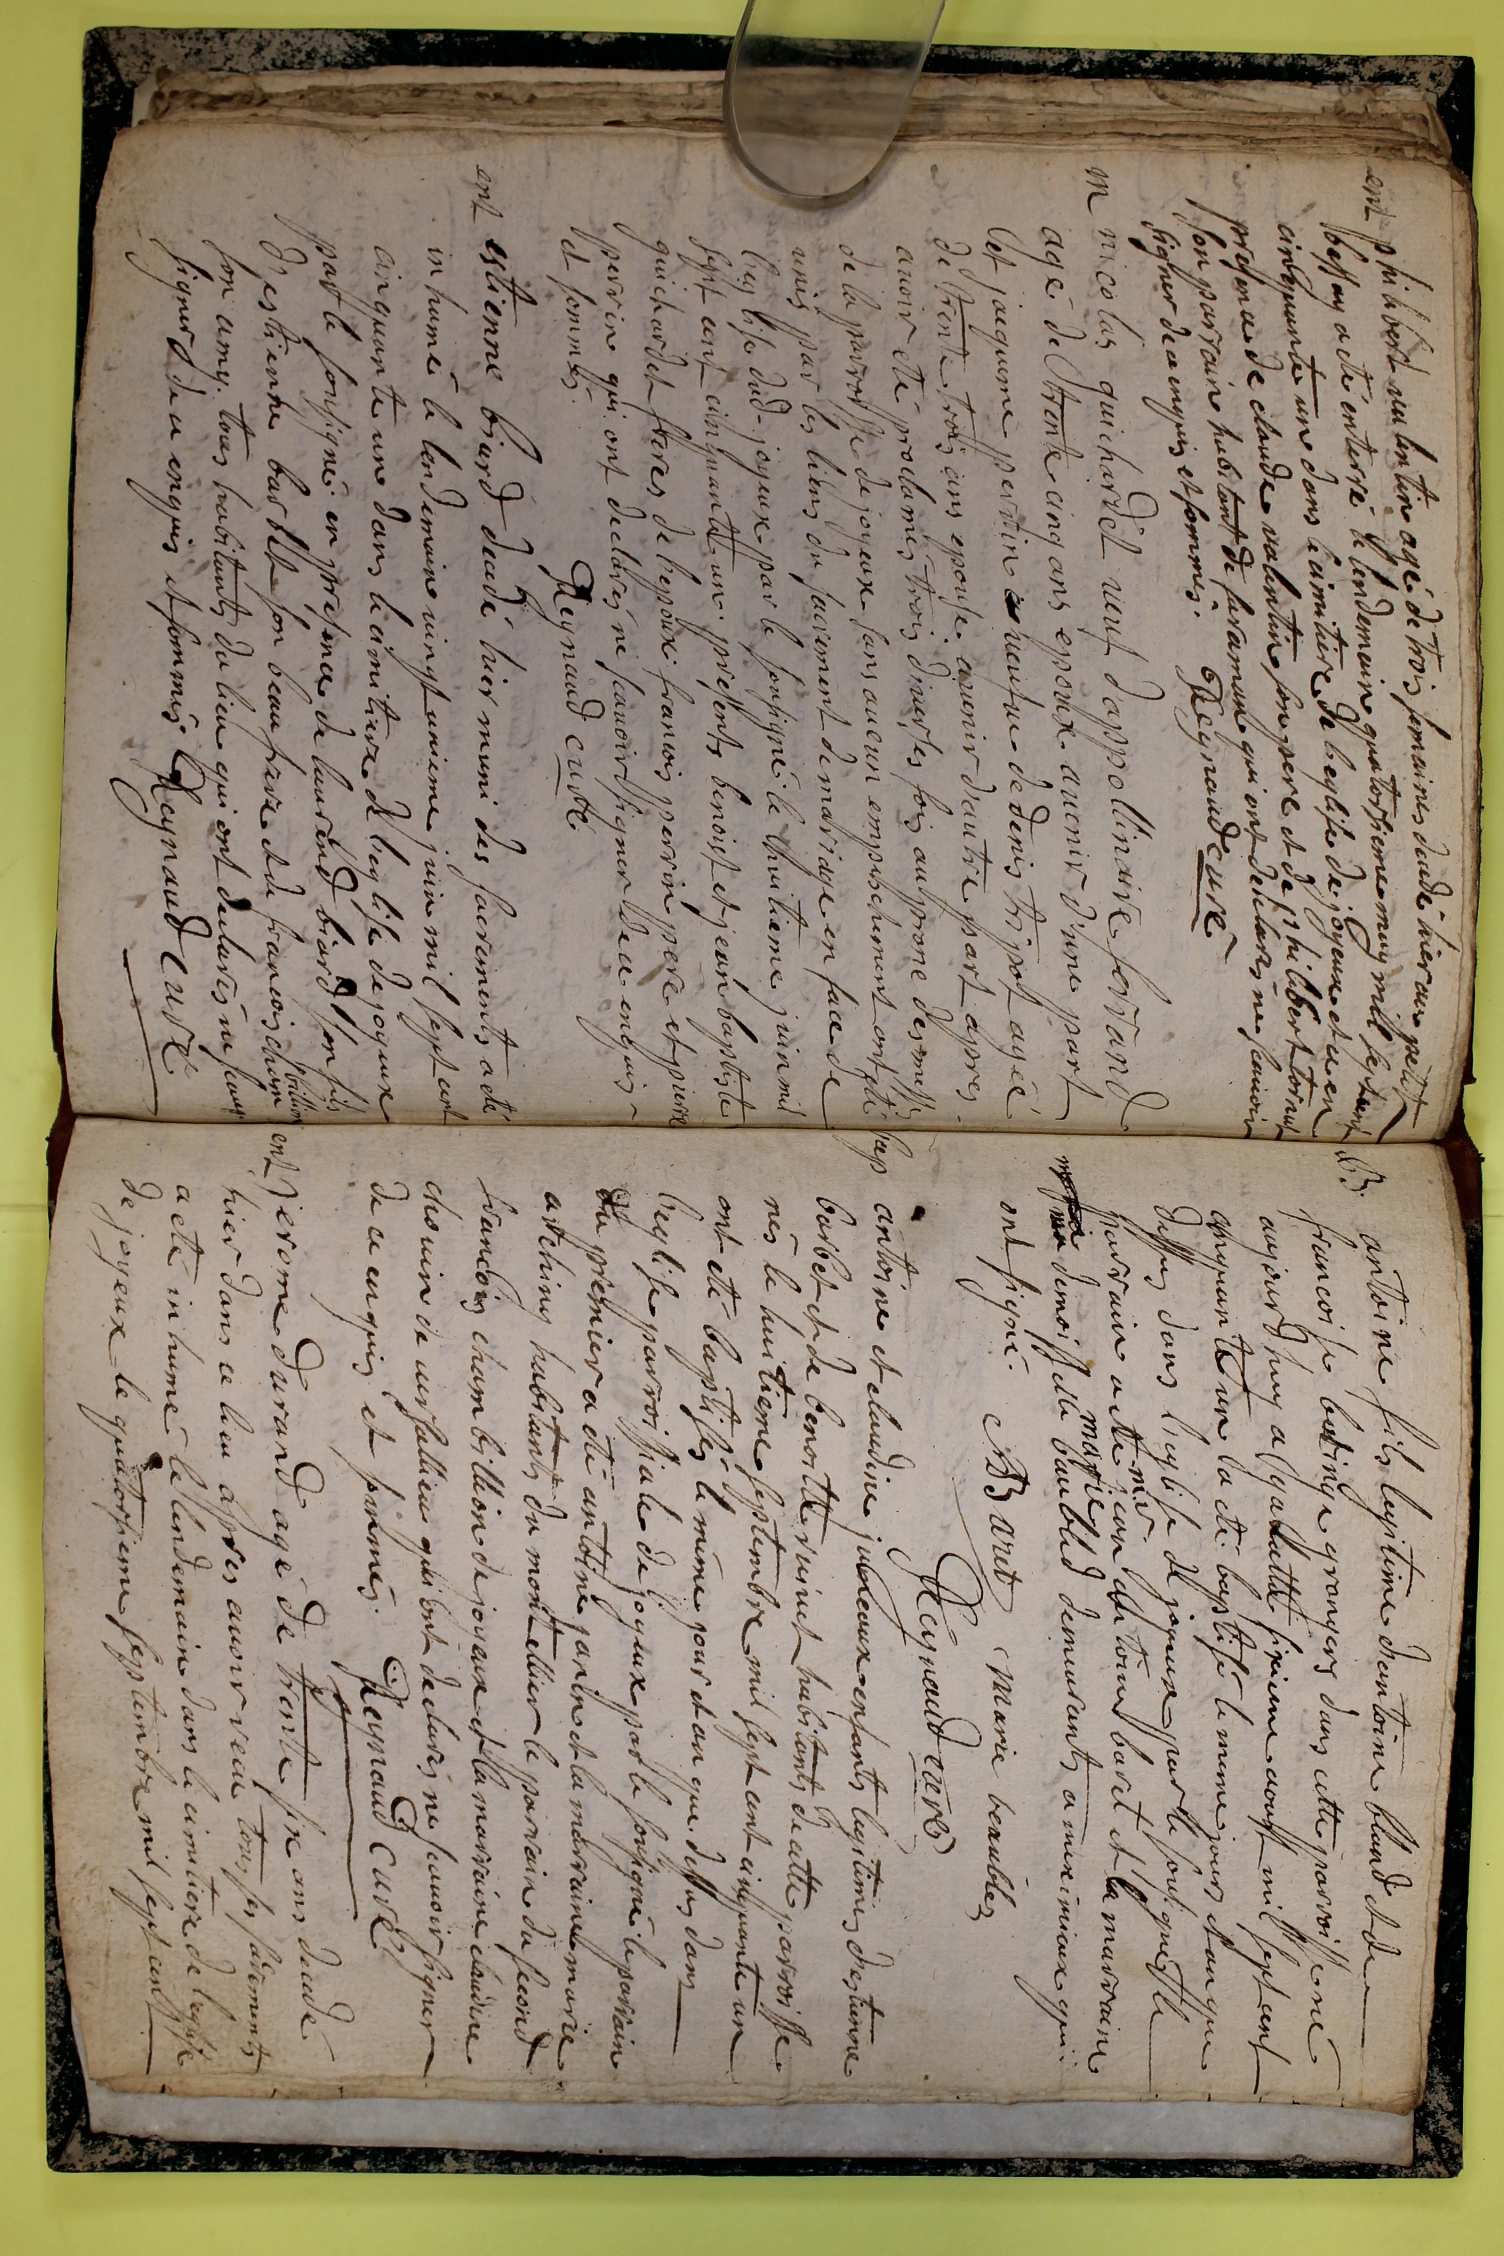 ent philibert valentin agé de trois semaines decedé hier au petit
bessay a eté enterré le lendemain quatorsieme may mil sept cent
cinquante une dans le cimitiere de l'eglise de joyeux et ce en
presence de claude valentin son pere et de philibert
son parrain habitant de faramans qui ont declarés ne scavoir
signer de ce enquis et sommés. Reynaud curé
m nicolas guichardet veuf d'appollinaire ferrand
agé de trente cinq ans epoux avenir d'une part
et jaqueme perrin veufve de denis tripot agée
de trente trois ans epouse avenir d'autre part apres
avoir eté proclamés trois diverses fois au prone des messes
de la parroisse de joyeux sans aucun empechement ont eté
unis par les liens du sacrement de mariage en face de
l'eglise dud. joyeux par le soussigné le huitieme juin mil
sept cent cinquante un. presents benoist et jean baptiste
guichardet freres de l'epoux. francois perrin pere et pierre
perrin qui ont declarés ne scavoir signer de ce enquis
et sommés.
Reynaud curé
ent estienne biard decedé hier muni des sacrements a eté
inhumé le lendemain vingt unieme juin mil sept cent
cinquante une dans le cimitiere de l'eglise de joyeux
par le soussigné en presence de laurend biard son fils
d'estienne barbet son beau frere et de francois chambillion
son amy. tous habitants du lieu qui ont declarés ne scavoir
signer de ce enquis et sommés. Reynaud curé
B. antoine fils legitime d'antoine bland et de
francoise burtinge grangers dans cette parroisse né
aujourd'huy a eté mil sept cent
cinquante une la eté baptisé le meme jour et an que
dessus dans l'eglise de joyeux par le soussigné. le
parrain a eté mr jean antoine baret et la marraine
demoiselle marie baubled demeurants a meximieux qui
ont signé. Baret marie baublez
Reynaud curé
bap antoine et claudine jumeaux enfants legitimes d'estienne
barbet et de benoitte habitants de cette parroisse
nés le huitieme septembre mil sept cent cinquante un
ont eté baptisés le même jour et an que dessus dans
l'eglise parroissiale de joyeux par le soussigné. le parrain
du premier a eté antoine janin et la marraine marie
habitants du montellier le parrain du second
francois chambillion de joyeux et la marraine claudine
de versallieu qui ont declarés ne scavoir signer
de ce enquis et sommés. Reynaud curé
ent jerome durand agé de trente six ans decedé
hier dans ce lieu apres avoir receu tous ses sacrements
a eté inhumé le lendemain dans le cimitiere de l'eglise
de joyeux le quatorsieme septembre mil sept cent